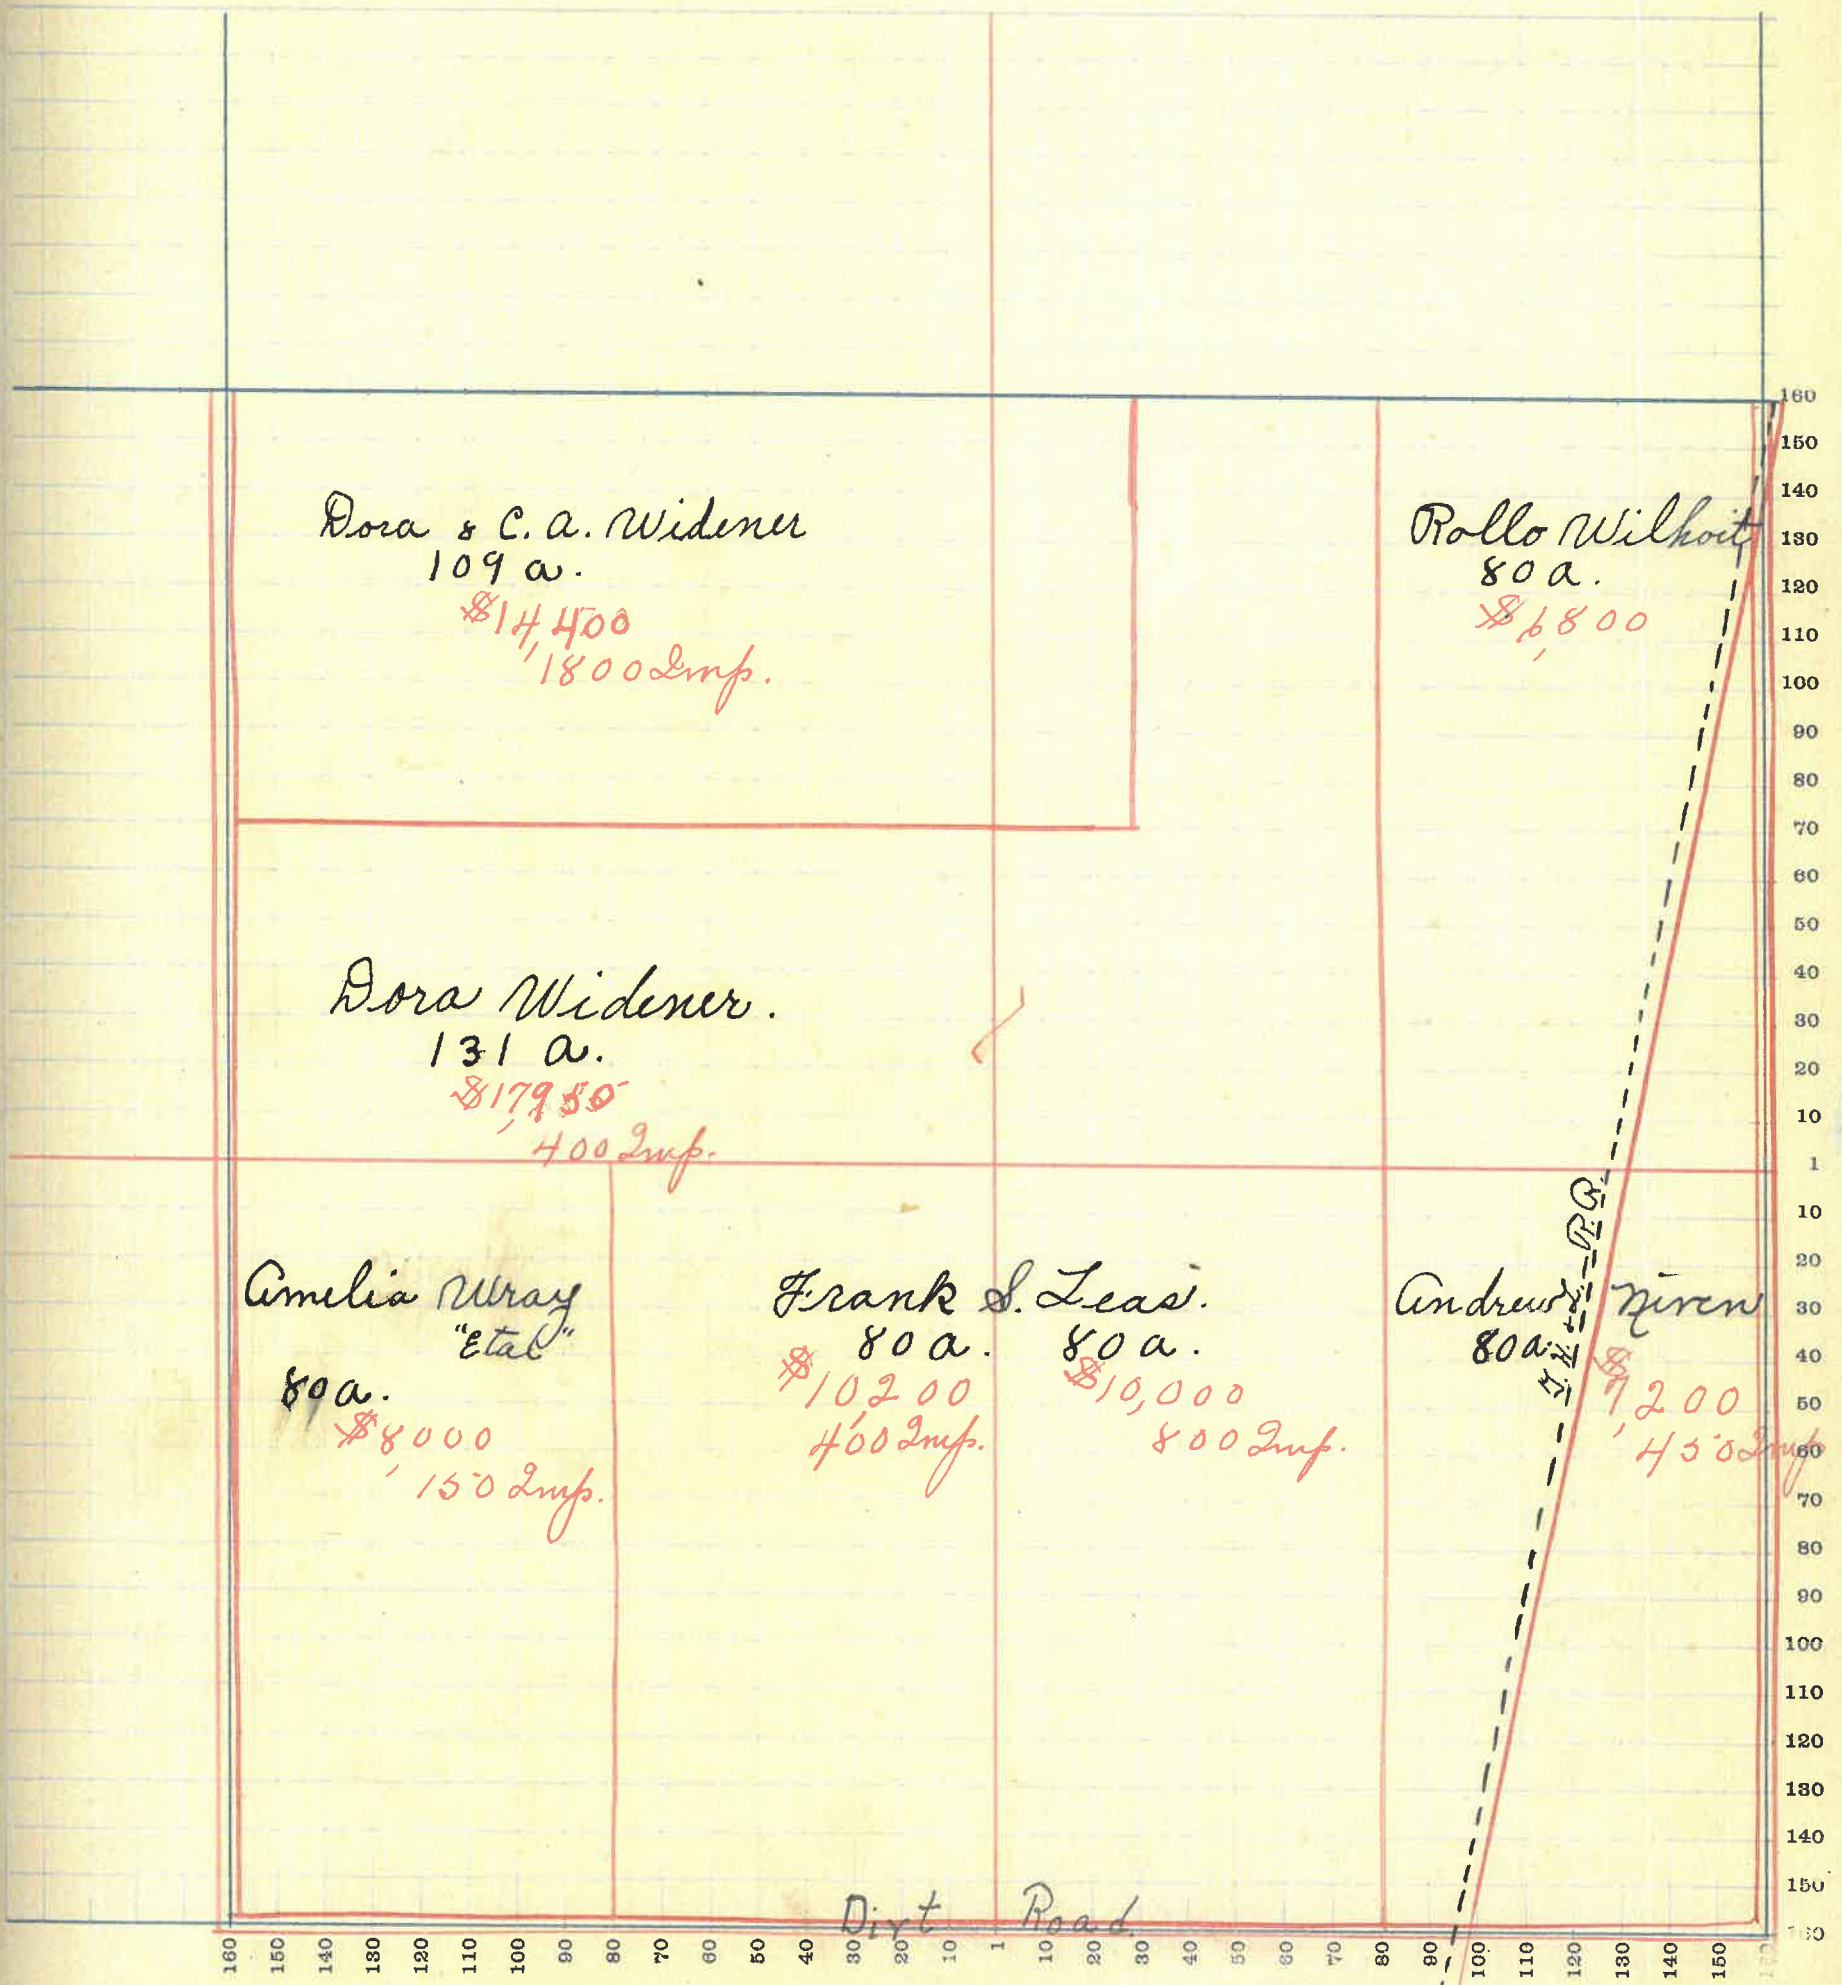 Dora & C. A. Widener
109 a.
$14,400
1800 Imp.
Rollo Wilhoit
80 a.
$6,800
Dora Widener.
131 a.
$17,950
400 Imp.
Amelia Wray
"Etal"
80 a.
$8,000
150 Imp.
Frank S. Leas.
80 a. 80 a.
$10,200 $10,000
400 Imp. 800 Imp.
Andrew Niven
80 a.
$7,200
450 Imp
R.R.
Dirt Road.
160
150
140
130
120
110
100
90
80
70
60
50
40
30
20
10
1
10
20
30
40
50
60
70
80
90
100
110
120
130
140
150
160
160 150 140 130 120 110 100 90 80 70 60 50 40 30 20 10 1 10 20 30 40 50 60 70 80 90 100 110 120 130 140 150